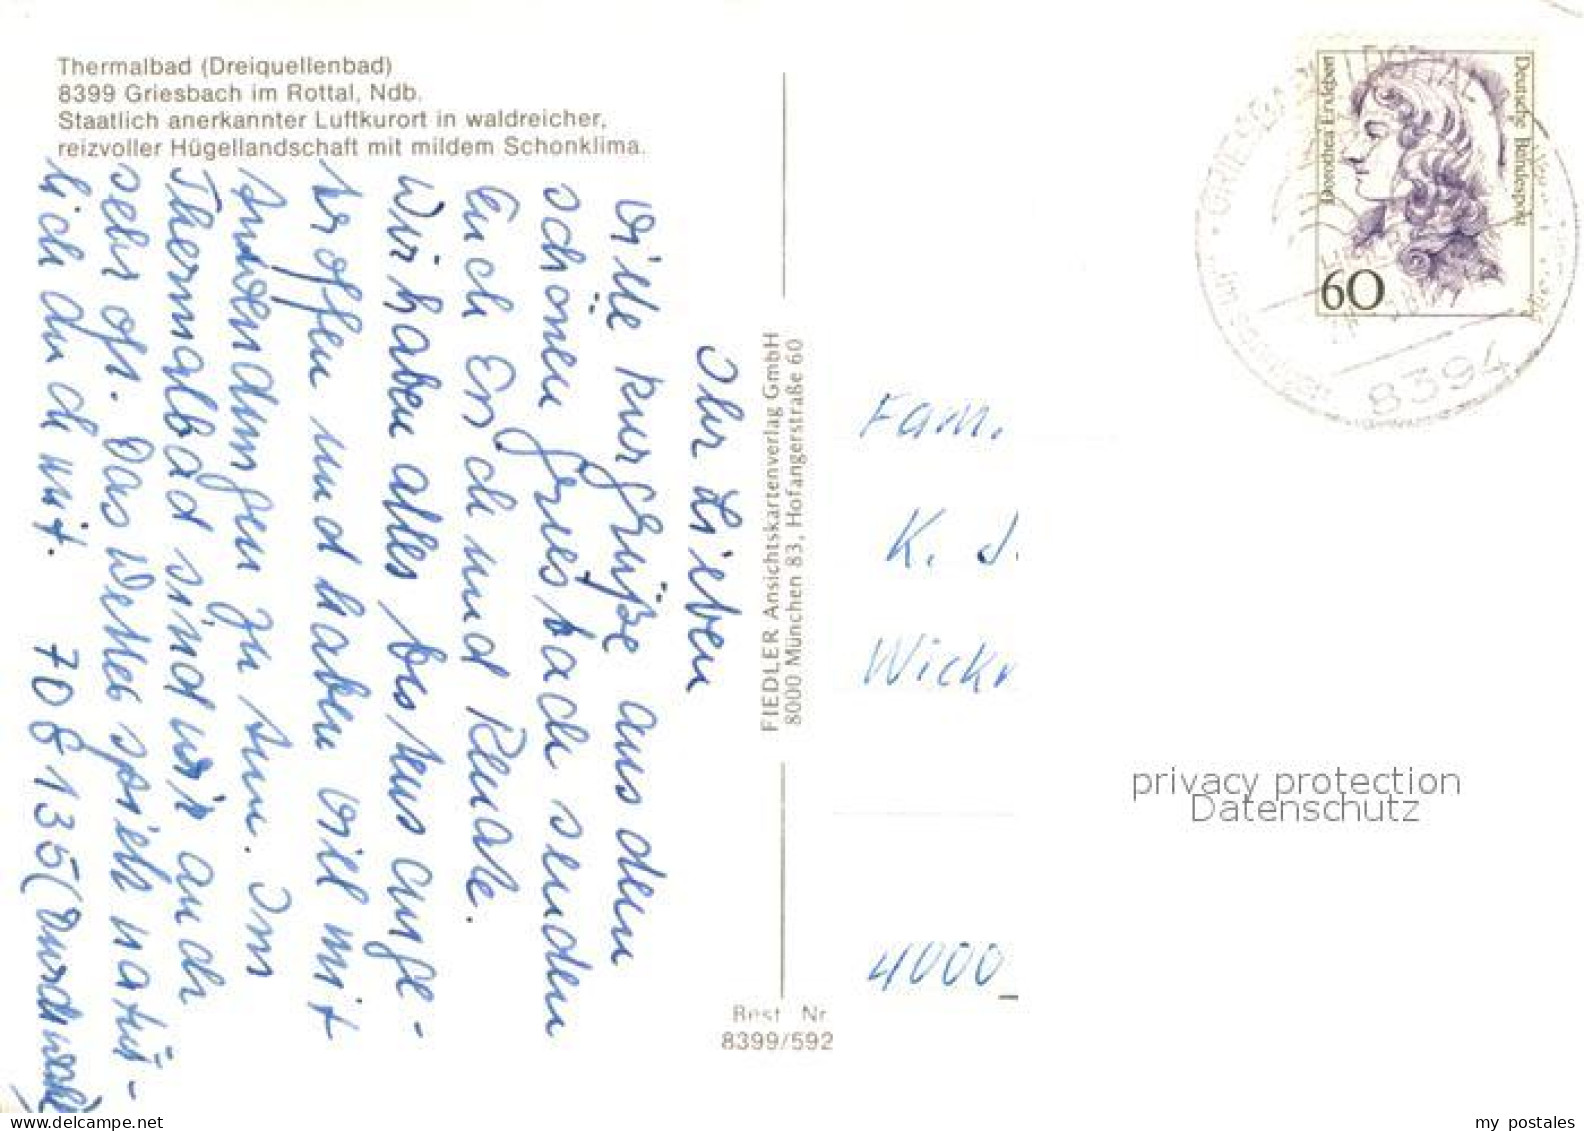 Thermalbad (Dreiquellenbad)
8399 Griesbach im Rottal, Ndb.
Staatlich anerkannter Luftkurort in waldreicher,
reizvoller Hügellandschaft mit mildem Schonklima.
Ihr Lieben
Viele Kurgrüße aus dem
schönen Griesbach senden
Euch Erich und Renate.
Wir haben alles bestens ange-
troffen und haben viel mit
Anwendungen zu tun. Im
Thermalbad sind wir auch
sehr oft. Das Wetter spielt natür-
lich auch mit. 708135 (Durchwahl)
FIEDLER Ansichtskartenverlag GmbH
8000 München 83, Hofangerstraße 60
Best Nr.
8399/592
Deutsche Bundespost
Dorothea Erxleben
60
8394
Fam.
K. J.
Wick
4000
privacy protection
Datenschutz
my postales